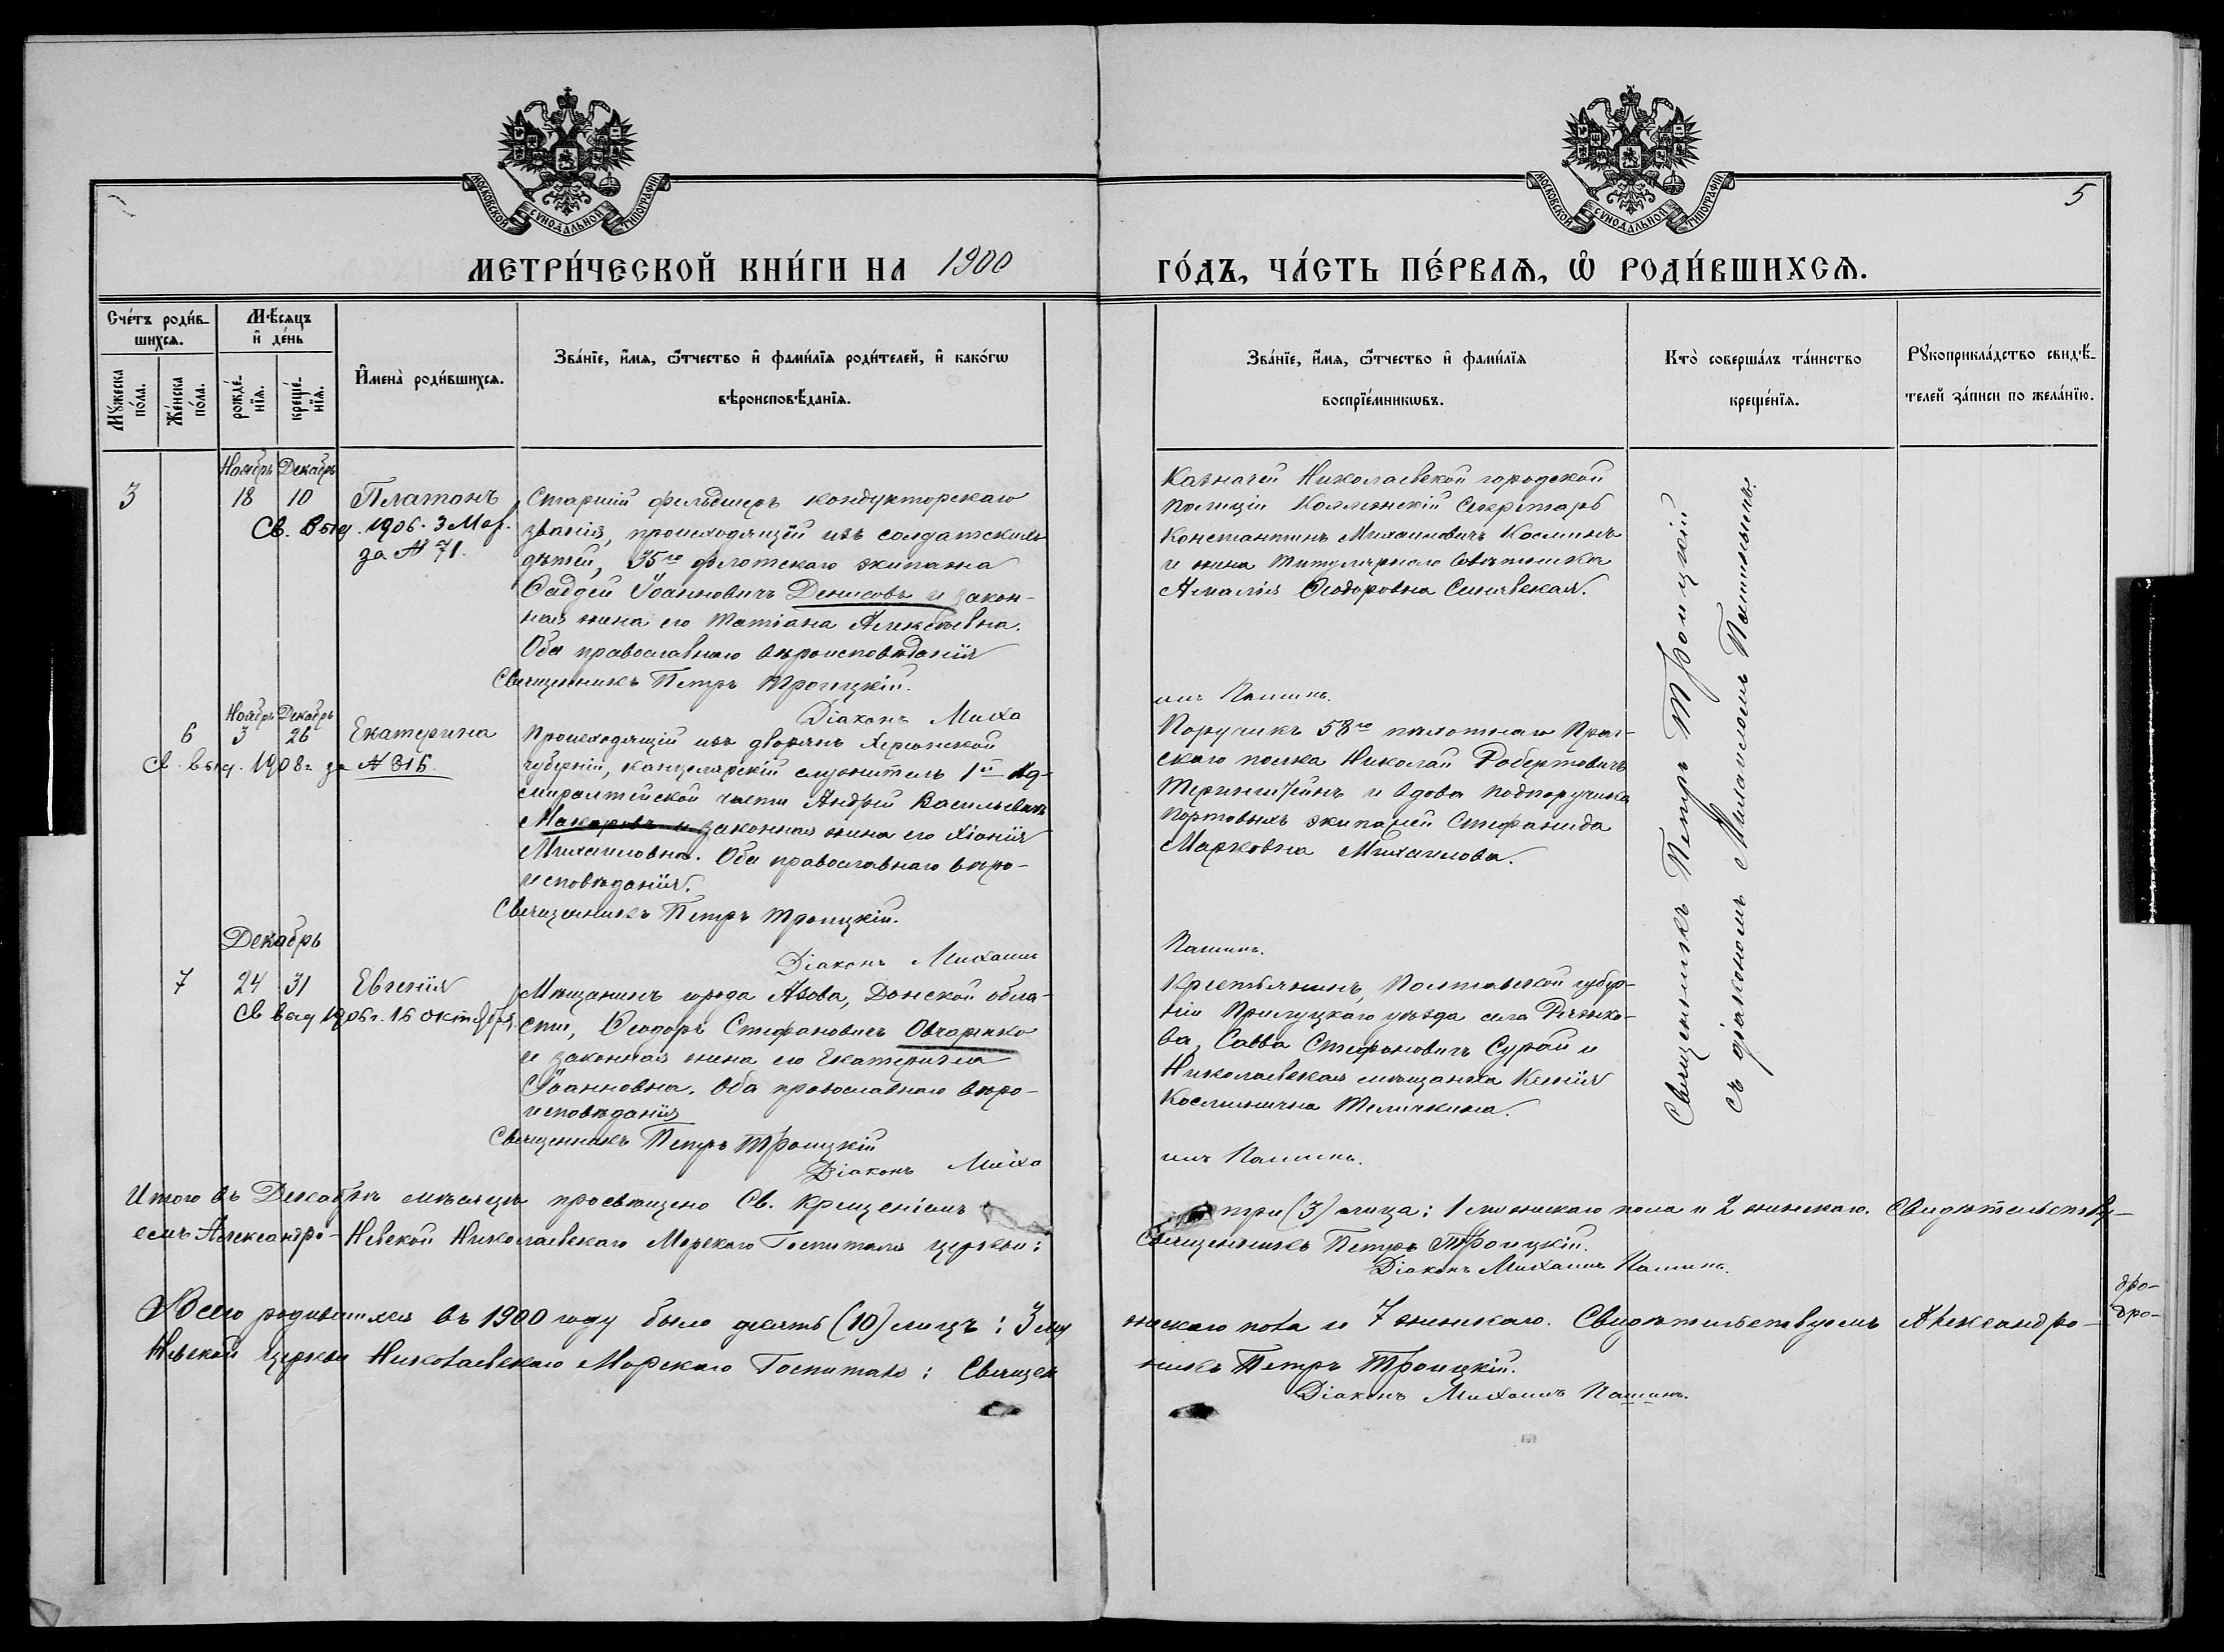 МОСКОВСКОЙ СУНОДАЛЬНОЙ ТИПОГРАФІИ
МОСКОВСКОЙ СУНОДАЛЬНОЙ ТИПОГРАФІИ
5
МЕТРИ́ЧЕСКОЙ КНИ́ГИ НА 1900
ГО́ДЪ, ЧА́СТЬ ПЕ́РВАѦ, Ѡ҆ РОДИ́ВШИХСѦ.
Сче́тъ роди́в-
шихсѧ.
Мꙋ́жеска
по́ла.
Же́нска
по́ла.
Мѣ́сѧцъ
и҆ де́нь
рожде́-
нїѧ.
креще́-
нїѧ.
И҆мена̀ роди́вшихсѧ.
Зва́нїе, и҆́мѧ, ѻ҆́тчество и҆ фами́лїѧ роди́телей, и҆ како́гѡ
вѣроисповѣ́данїѧ.
Зва́нїе, и҆́мѧ, ѻ҆́тчество и҆ фами́лїѧ
воспрїе́мникѡвъ.
Кто̀ соверша́лъ та́инство
креще́нїѧ.
Рꙋкоприкла́дство свидѣ́-
телей за́писи по жела́нїю.
Ноябрь Декабрь
3 18 10 Платонъ
Св. выд. 1906. 3 Мар.
за № 71.
Старшій фельдшеръ кондукторскаго
званія, происходящій изъ солдатскихъ
дѣтей, 35го флотскаго экипажа
Фаддей Іоанновичъ Денисовъ и закон-
ная жена его Татіана Алексѣевна.
Оба православнаго вѣроисповѣданія
Священникъ Петръ Троицкій.
Діаконъ Миха
Казначей Николаевской городской
полиціи Коллежскій Секретарь
Константинъ Михаиловичъ Косминъ
и жена титулярнаго совѣтника
Амалія Ѳеодоровна Синявская.
илъ Пашинъ.
Ноябрь Декабрь
6 3 26 Екатерина
Св. выд. 1908 г. за № 316
Происходящій изъ дворянъ Херсонской
губерніи, канцелярскій служитель 1й Ад-
миралтейской части Андрей Васильевичъ
Макаровъ и законная жена его Хіонія
Михаиловна. Оба православнаго вѣро-
исповѣданія.
Священникъ Петръ Троицкій.
Діаконъ Михаилъ
Поручикъ 58го пѣхотнаго Праг-
скаго полка Николай Робертовичъ
и вдова подпоручика
портовыхъ экипажей Стефанида
Марковна Михаилова.
Пашинъ.
Декабрь
7 24 31 Евгенія
Св выд 1906 г. 16 октября.
Мѣщанинъ города Азова, Донской обла-
сти, Ѳеодоръ Стефановичъ Овчаренко
и законная жена его Екатерина
Іоанновна. Оба православнаго вѣро-
исповѣданія
Священникъ Петръ Троицкій
Діаконъ Миха
Крестьянинъ, Полтавской губер-
ніи Прилуцкаго уѣзда села
Савва Стефановичъ Сурай и
Николаевская мѣщанка Ксенія
Косминична Теличкина.
илъ Пашинъ.
Священникъ Петръ Троицкій
съ діакономъ Михаиломъ Пашинымъ.
Итого въ Декабрѣ мѣсяцѣ просвѣщено Св. Крещеніемъ три (3) лица: 1 мужескаго пола и 2 женскаго. Свидѣтельству-
емъ Александро-Невской Николаевскаго Морскаго Госпиталя церкви: Священникъ Петръ Троицкій.
Діаконъ Михаилъ Пашинъ.
Всего родившихся въ 1900 году было десять (10) лицъ: 3 му жескаго пола и 7 женскаго. Свидѣтельствуемъ Александро-
Невской церкви Николаевскаго Морскаго Госпиталя: Священ никъ Петръ Троицкій.
Діаконъ Михаилъ Пашинъ.
дро-
дро-